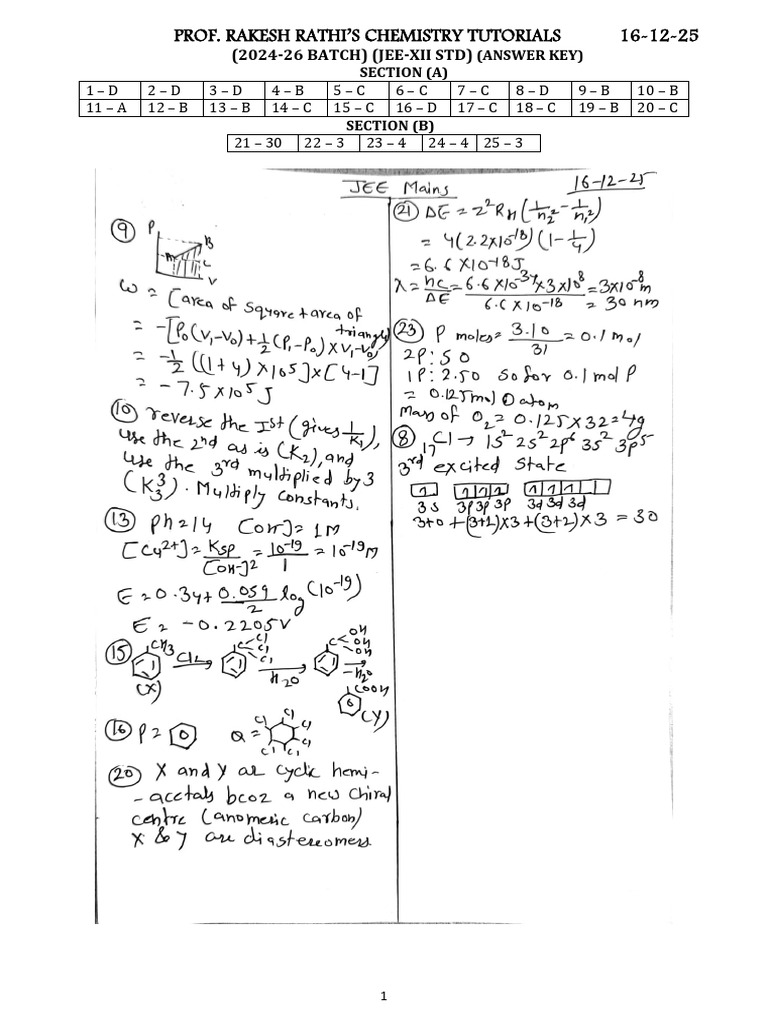 PROF. RAKESH RATHI'S CHEMISTRY TUTORIALS 16-12-25
(2024-26 BATCH) (JEE-XII STD) (ANSWER KEY)
SECTION (A)
1 – D 2 – D 3 – D 4 – B 5 – C 6 – C 7 – C 8 – D 9 – B 10 – B
11 – A 12 – B 13 – B 14 – C 15 – C 16 – D 17 – C 18 – C 19 – B 20 – C
SECTION (B)
21 – 30 22 – 3 23 – 4 24 – 4 25 – 3
JEE Mains 16-12-25
⑨ P
B
C
V
W = [area of square + area of triangle]
= -[P₀(V₁-V₀) + ½(P₁-P₀)×V₁-V₀]
= -½((1+4)×10⁵]×[4-1]
= -7.5×10⁵J
⑩ reverse the Ist (gives 1/K₁),
use the 2nd as is (K₂), and
use the 3rd multiplied by 3
(K₃³). Multiply constants.
⑬ PH=14 [OH⁻]= 1M
[Cu²⁺]= Ksp/[OH⁻]² = 10⁻¹⁹/1 = 10⁻¹⁹M
E=0.34+ 0.059/2 log(10⁻¹⁹)
E= -0.2205V
⑮ CH₃ Cl₂ → C Cl Cl Cl H₂O → C OH OH OH -H₂O →
(X)
COOH
(Y)
⑯ P= Q= Cl Cl Cl Cl Cl Cl
⑳ X and Y are cyclic hemi-
-acetals bcoz a new chiral
centre (anomeric carbon)
X & Y are diastereomers
㉑ ΔE = Z²R_H(1/n₂² - 1/n₁²)
= 4(2.2×10⁻¹⁸)(1-1/4)
= 6.6×10⁻¹⁸J
λ= hc/ΔE = 6.6×10⁻³⁴×3×10⁸/6.6×10⁻¹⁸ = 3×10⁻⁸m
= 30 nm
㉓ P moles= 3.10/31 = 0.1 mol
2P : 5O
1P : 2.5O So for 0.1 mol P
= 0.125mol O atom
Mass of O₂ = 0.125×32=4g
⑧ ₁₇Cl → 1s² 2s² 2p⁶ 3s² 3p⁵
3rd excited state
3s 3p 3p 3p 3d 3d 3d
3+0 + (3+1)×3 + (3+2)×3 = 30
1